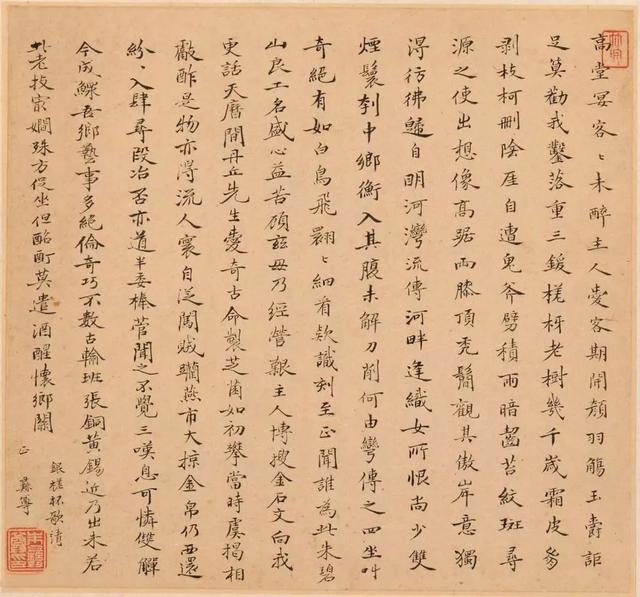 高堂宴客〻未醉主人愛客期開顏羽觴玉斝詎
足算勸我鑿落重三鍰槎枒老樹幾千歲霜皮旁
剝枝柯刪陰厓自遭鬼斧劈積雨暗齧苔紋斑尋
源之使出想像高踞兩膝頂禿鬜觀其傲岸意獨
得彷彿歸自明河灣流傳河畔逢織女所恨尚少雙
煙鬟刳中鄉衡入其腹未解刀削何由彎傳之四坐叫
奇絕有如白鳥飛翾〻細看款識刻至正聞誰為此朱碧
山良工名盛心益苦顧茲毋乃經營艱主人博搜金石文向我
更話天曆間丹丘先生愛奇古命製芝菌如初攀當時虞揭相
獻酢是物亦得流人寰自從闖賊躪燕市大掠金帛仍西還
紛〻入肆尋段冶否亦道半委榛菅聞之不覺三嘆息可憐雙觶
今成鰥吾鄉藝事多絕倫奇巧不數古輪班張銅黃錫近乃出未若
此老技最嫺殊方促坐但酩酊莫遣酒醒懷鄉關
銀槎杯歌請
正 彝尊